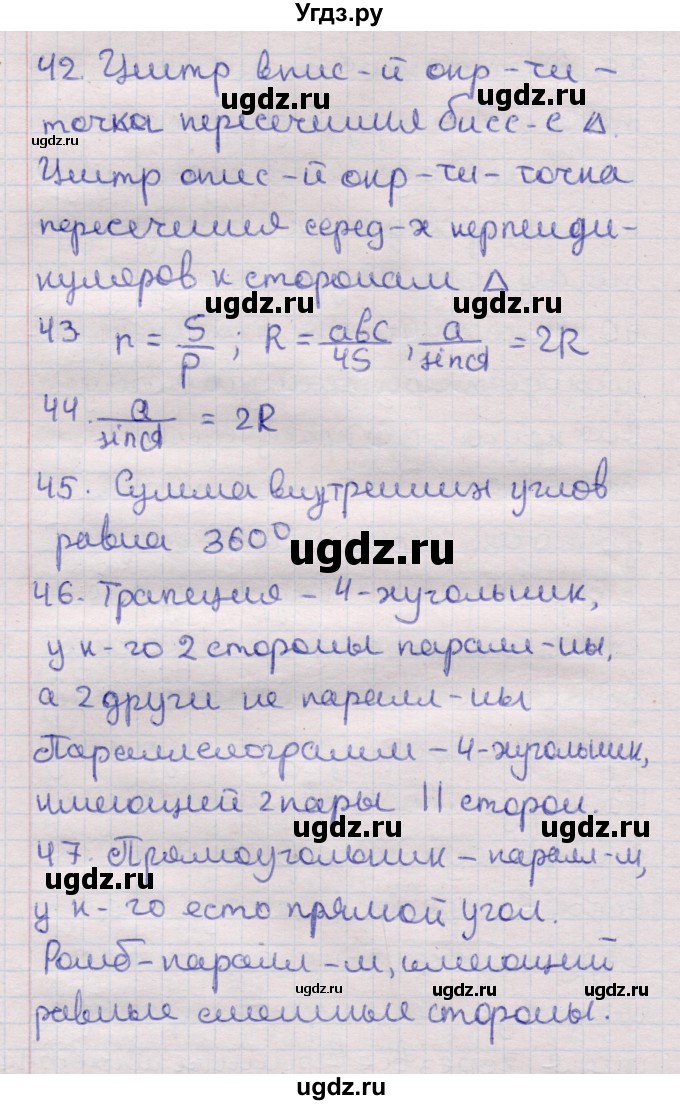 Угдз.ру
42. Центр впис-й окр-ти -
точка пересечения бисс-с Δ.
Центр опис-й окр-ти - точка
пересечения серед-х перпенди-
куляров к сторонам Δ
43 r = S/p ; R = abc/4S , a/sinα = 2R
44. a/sinα = 2R
45. Сумма внутренних углов
равна 360°
46. Трапеция - 4-хугольник,
у к-го 2 стороны паралл-ны,
а 2 други не паралл-ны
Параллелограмм - 4-хугольник,
имеющий 2 пары || сторон.
47. Прямоугольник - паралл-м,
у к-го есть прямой угол.
Ромб - паралл-м, имеющий
равные смежные стороны.
ugdz.ru
ugdz.ru
ugdz.ru
ugdz.ru
ugdz.ru
ugdz.ru
ugdz.ru
ugdz.ru
ugdz.ru
ugdz.ru
ugdz.ru
ugdz.ru
ugdz.ru
ugdz.ru